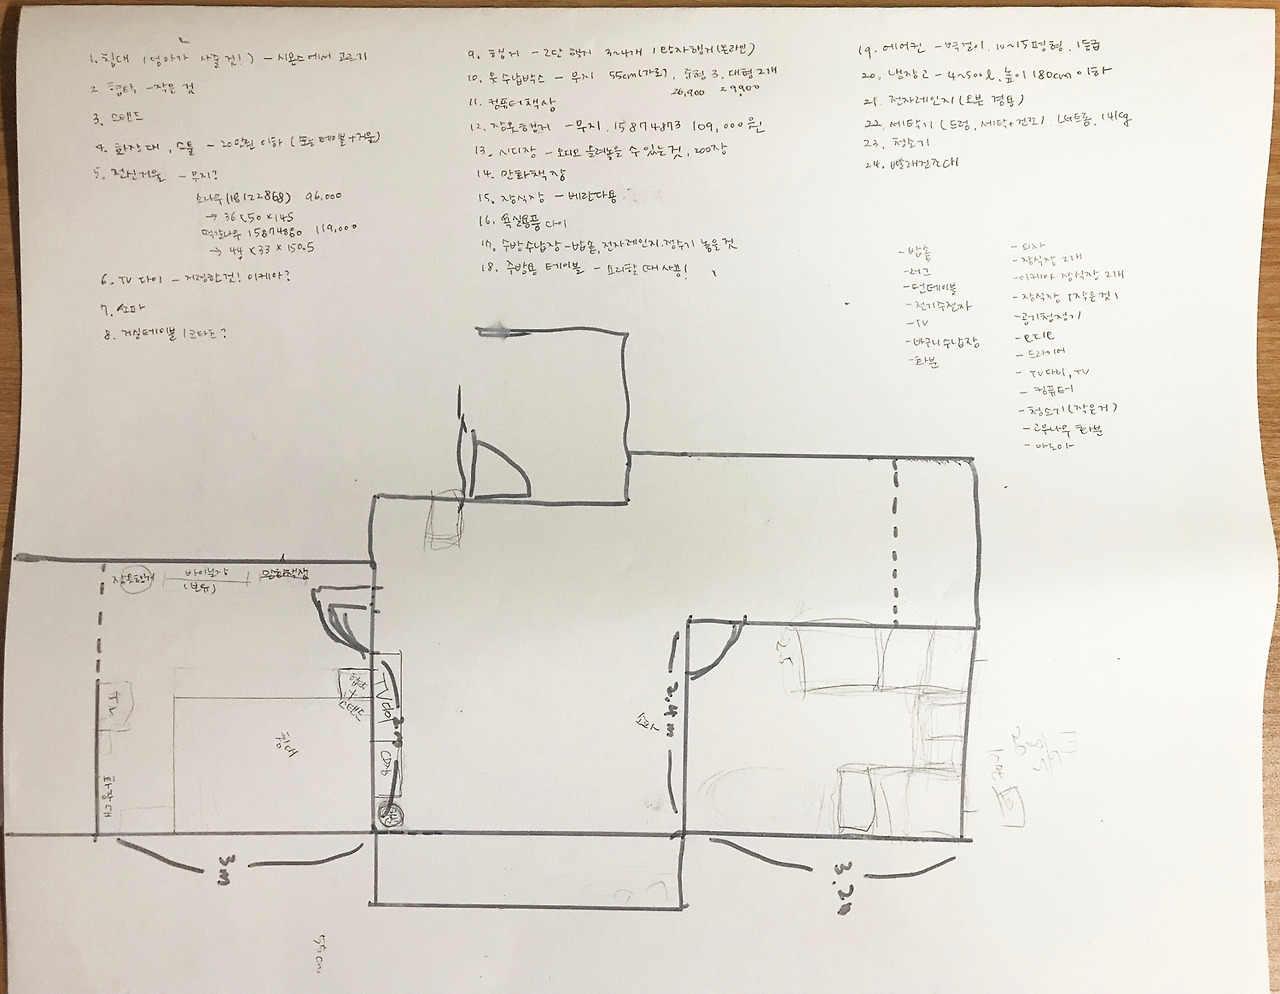 1. 침대 (엄마가 사줄 것!) - 시몬스에서 고르기
2. 협탁 - 작은 것
3. 스탠드
4. 화장대, 스툴 - 20만원 이하 (또는 테이블+거울)
5. 전신거울 - 무지?
소나무(18122868) 96,000
→ 36 x 50 x 145
떡갈나무 15874860 119,000
→ 44 x 33 x 150.5
6. TV 다이 - 저렴한것! 이케아?
7. 소파
8. 거실테이블 / 코타츠?
9. 행거 - 2단 행거 3~4개 / 일자행거(온라인)
10. 옷수납박스 - 무지 55cm(가로), 중형 3, 대형 2개
26,900 29,900
11. 컴퓨터책상
12. 장옷행거 - 무지. 15874873 109,000원
13. 시디장 - 오디오 올려놓을 수 있는 것, 200장
14. 만화책장
15. 장식장 - 베란다용
16. 욕실용품 다이
17. 주방수납장 - 밥솥, 전자레인지, 정수기 놓을 것
18. 주방용 테이블 - 요리할 때 사용!
19. 에어컨 - 벽걸이, 10~15평형, 1등급
20. 냉장고 - 4~500L, 높이 180cm 이하
21. 전자레인지 (오븐 겸용)
22. 세탁기 (드럼, 세탁+건조), LG트롬, 14kg
23. 청소기
24. 빨래건조대
- 밥솥
- 러그
- 턴테이블
- 전기주전자
- TV
- 바구니수납장
- 화분
- 의자
- 장식장 2개
- 이케아 장식장 2개
- 장식장 (작은것)
- 공기청정기
- 오디오
- 드라이어
- TV다이, TV
- 컴퓨터
- 청소기(작은거)
- 고무나무 화분
장옷행거
바이닐장
(보유)
만화책장
협탁
+
스탠드
TV다이
2m
CD장
화분
TV
침대
화장대
소파
2.4m
2.5
3m
3.2m
55cm